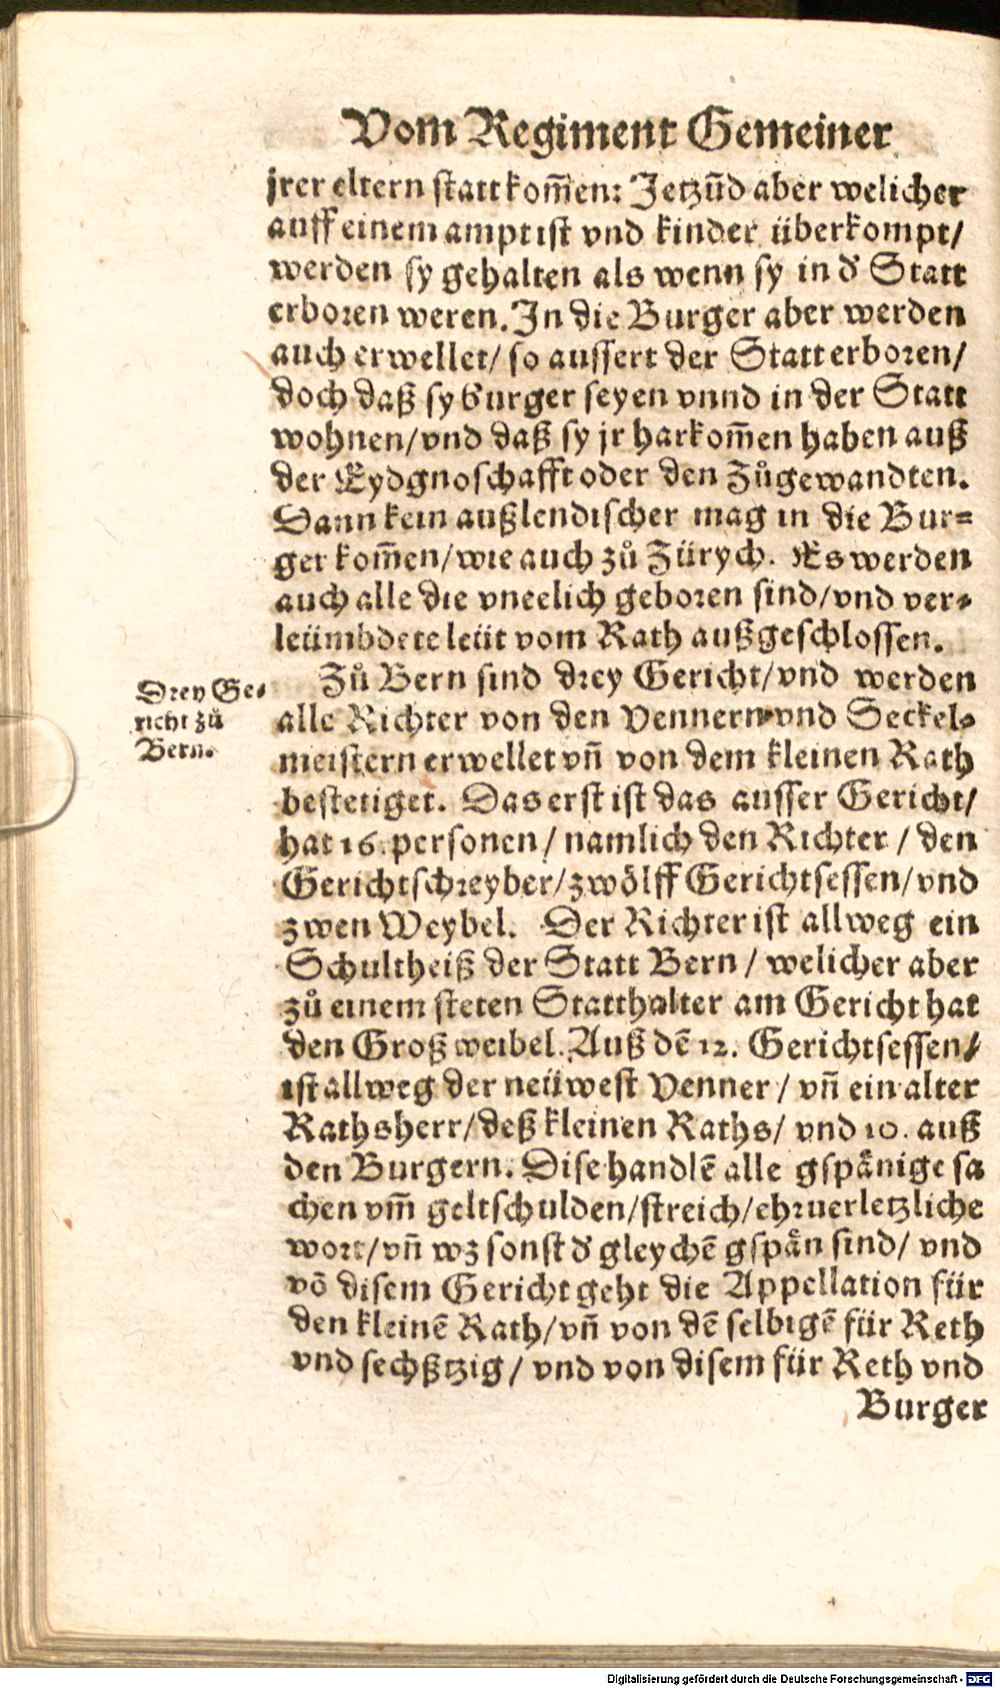 Vom Regiment Gemeiner
jrer eltern statt kom̃en: Jetzũd aber welicher
auff einem ampt ist vnd kinder überkompt/
werden sy gehalten als wenn sy in d' Statt
erboren weren. In die Burger aber werden
auch erwellet/ so aussert der Statt erboren/
doch daß sy burger seyen vnnd in der Statt
wohnen/ vnd daß sy jr harkom̃en haben auß
der Eydgnoschafft oder den Zůgewandten.
Dann kein außlendischer mag in die Bur=
ger kom̃en/ wie auch zů Zürych. Es werden
auch alle die vneelich geboren sind/ vnd ver=
leümbdete leüt vom Rath außgeschlossen.
Drey Ge=
richt zů
Bern.
Zů Bern sind drey Gericht/ vnd werden
alle Richter von den Vennern vnd Seckel=
meistern erwellet vñ von dem kleinen Rath
bestetiget. Das erst ist das ausser Gericht/
hat 16. personen/ namlich den Richter/ den
Gerichtschreyber/ zwölff Gerichtsessen/ vnd
zwen Weybel. Der Richter ist allweg ein
Schultheiß der Statt Bern/ welicher aber
zů einem steten Statthalter am Gericht hat
den Großweibel. Auß dẽ 12. Gerichtsessen/
ist allweg der neüwest Venner/ vñ ein alter
Rathsherr/ deß kleinen Raths/ vnd 10. auß
den Burgern. Dise handlẽ alle gspånige sa
chen vm̃ geltschulden/ streich/ ehruerletzliche
wort/ vñ wz sonst d' gleychẽ gspån sind/ vnd
võ disem Gericht geht die Appellation für
den kleinẽ Rath/ vñ von dẽ selbigẽ für Reth
vnd sechßtzig/ vnd von disem für Reth vnd
Burger
Digitalisierung gefördert durch die Deutsche Forschungsgemeinschaft - DFG